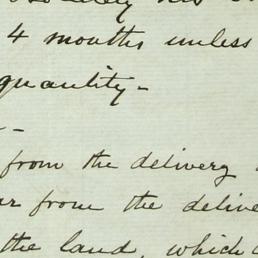 4 months unless
quantity -
-
from the delivery
from the delive
the land, which